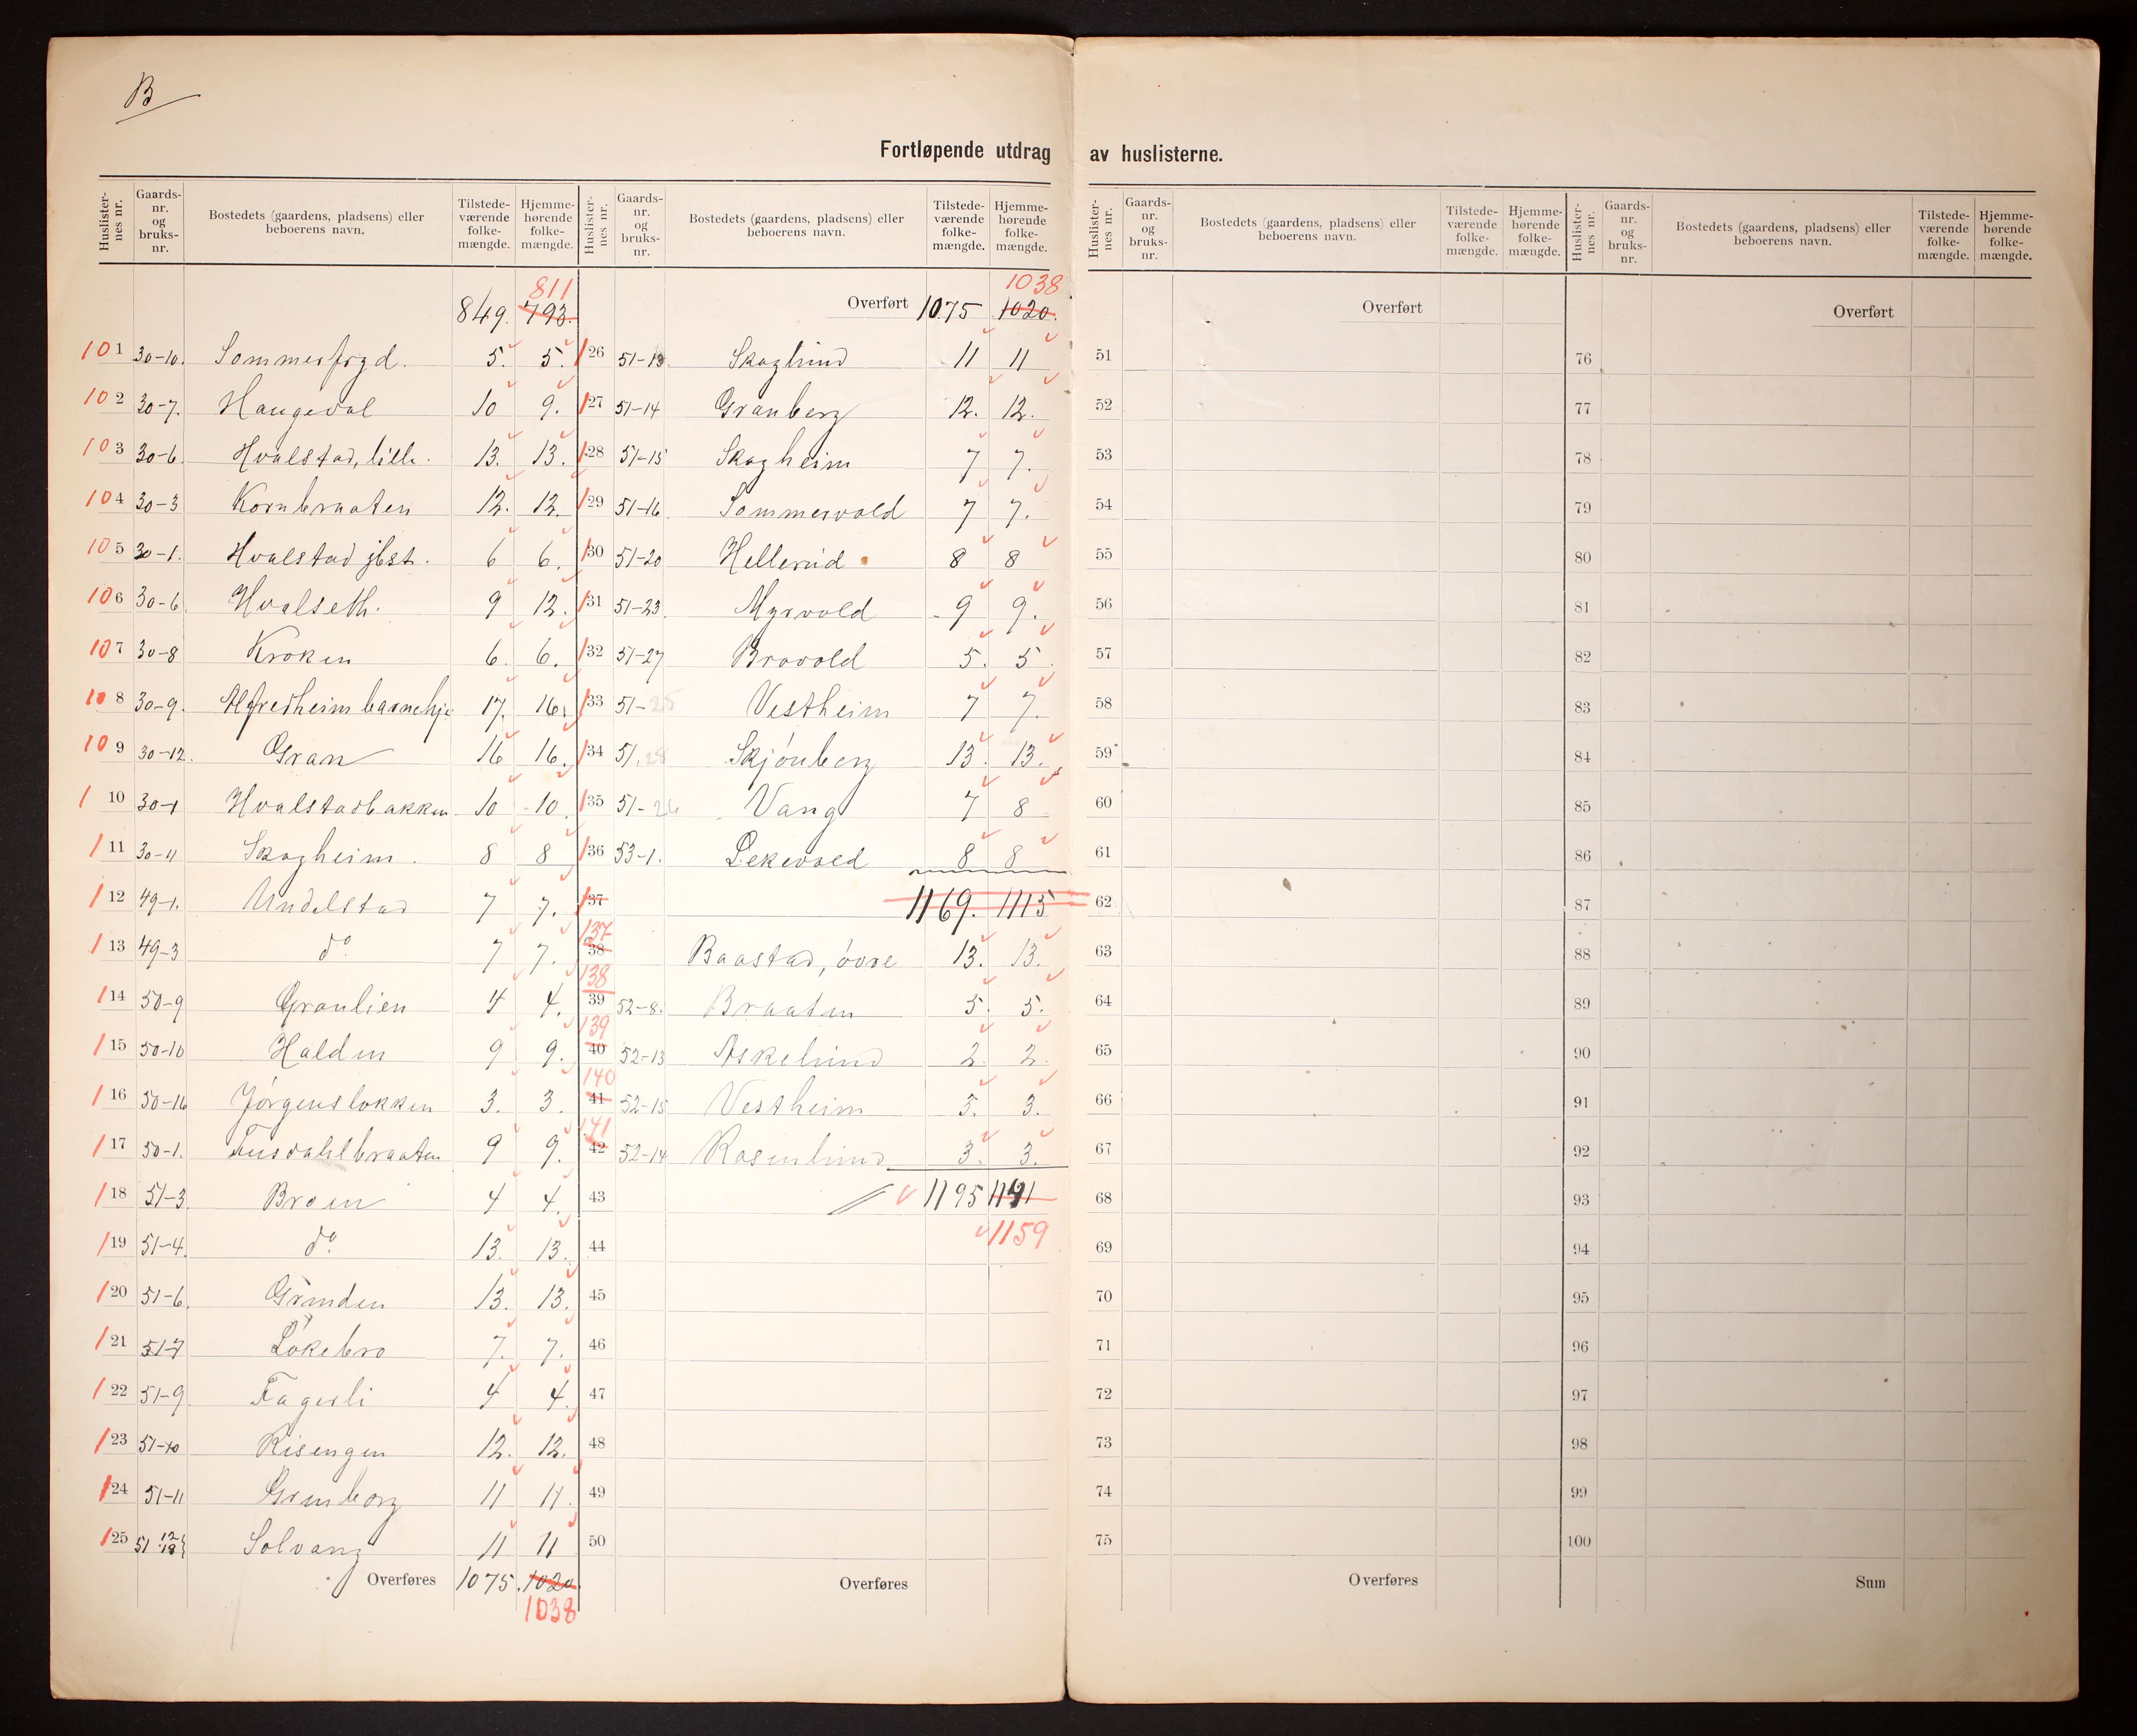 B
Fortløpende utdrag av huslisterne.
Huslisternes nr. Gaards-nr. og bruks-nr. Bostedets (gaardens, pladsens) eller beboerens navn. Tilstede-værende folke-mængde. Hjemme-hørende folke-mængde.
811
849. 793.
101 30-10. Sommerfryd. 5. 5.
102 30-7. Haugeval 10 9.
103 30-6. Hvalstad, lille. 13. 13.
104 30-3 Kornbraaten 12. 12.
105 30-1. Hvalstad 6 6.
106 30-6. Hvalseth. 9 12.
107 30-8 Kroken 6. 6.
108 30-9. Alfredheim barnehje 17. 16.
109 30-12. Gran 16 16.
110 30-1 Hvalstadbakken 10 10.
111 30-11 Skogheim. 8 8
112 49-1. Undelstad 7 7.
113 49-3 do 7 7.
114 50-9 Granlien 4 4.
115 50-10 Halden 9 9.
116 50-16 Jørgensløkken 3. 3.
117 50-1. Fusdahlbraaten 9 9.
118 51-3. Broen 4 4.
119 51-4. do 13. 13.
120 51-6. Grinden 13. 13.
121 51-7 Løkebro 7. 7.
122 51-9. Fagerli 4 4.
123 51-10 Risengen 12. 12.
124 51-11 Grinborg 11 11.
125 51 12 18 Solvang 11 11
Overføres 1075. 1020.
1038
Huslisternes nr. Gaards-nr. og bruks-nr. Bostedets (gaardens, pladsens) eller beboerens navn. Tilstede-værende folke-mængde. Hjemme-hørende folke-mængde.
1038
Overført 1075 1020.
126 51-13. Skoglund 11 11
127 51-14 Granberg 12. 12.
128 51-15 Skogheim 7 7.
129 51-16. Sommervold 7 7.
130 51-20 Hellerud 8 8
131 51-23. Myrvold 9 9.
132 51-27 Brovold 5. 5.
133 51-25 Vestheim 7 7.
134 51.28 Skjønberg 13. 13.
135 51-26 Vang 7 8
136 53-1. Lekevold 8 8
137 1169. 1115
137 38 Baastad, øvre 13. 13.
138 39 52-8. Braaten 5. 5.
139 40 52-13 Askelund 2. 2.
140 41 52-15 Vestheim 3. 3.
141 42 52-14 Rosenlund 3. 3.
43 1195 1141
1159
44
45
46
47
48
49
50
Overføres
Huslisternes nr. Gaards-nr. og bruks-nr. Bostedets (gaardens, pladsens) eller beboerens navn. Tilstede-værende folke-mængde. Hjemme-hørende folke-mængde.
Overført
51
52
53
54
55
56
57
58
59
60
61
62
63
64
65
66
67
68
69
70
71
72
73
74
75
Overføres
Huslisternes nr. Gaards-nr. og bruks-nr. Bostedets (gaardens, pladsens) eller beboerens navn. Tilstede-værende folke-mængde. Hjemme-hørende folke-mængde.
Overført
76
77
78
79
80
81
82
83
84
85
86
87
88
89
90
91
92
93
94
95
96
97
98
99
100
Sum